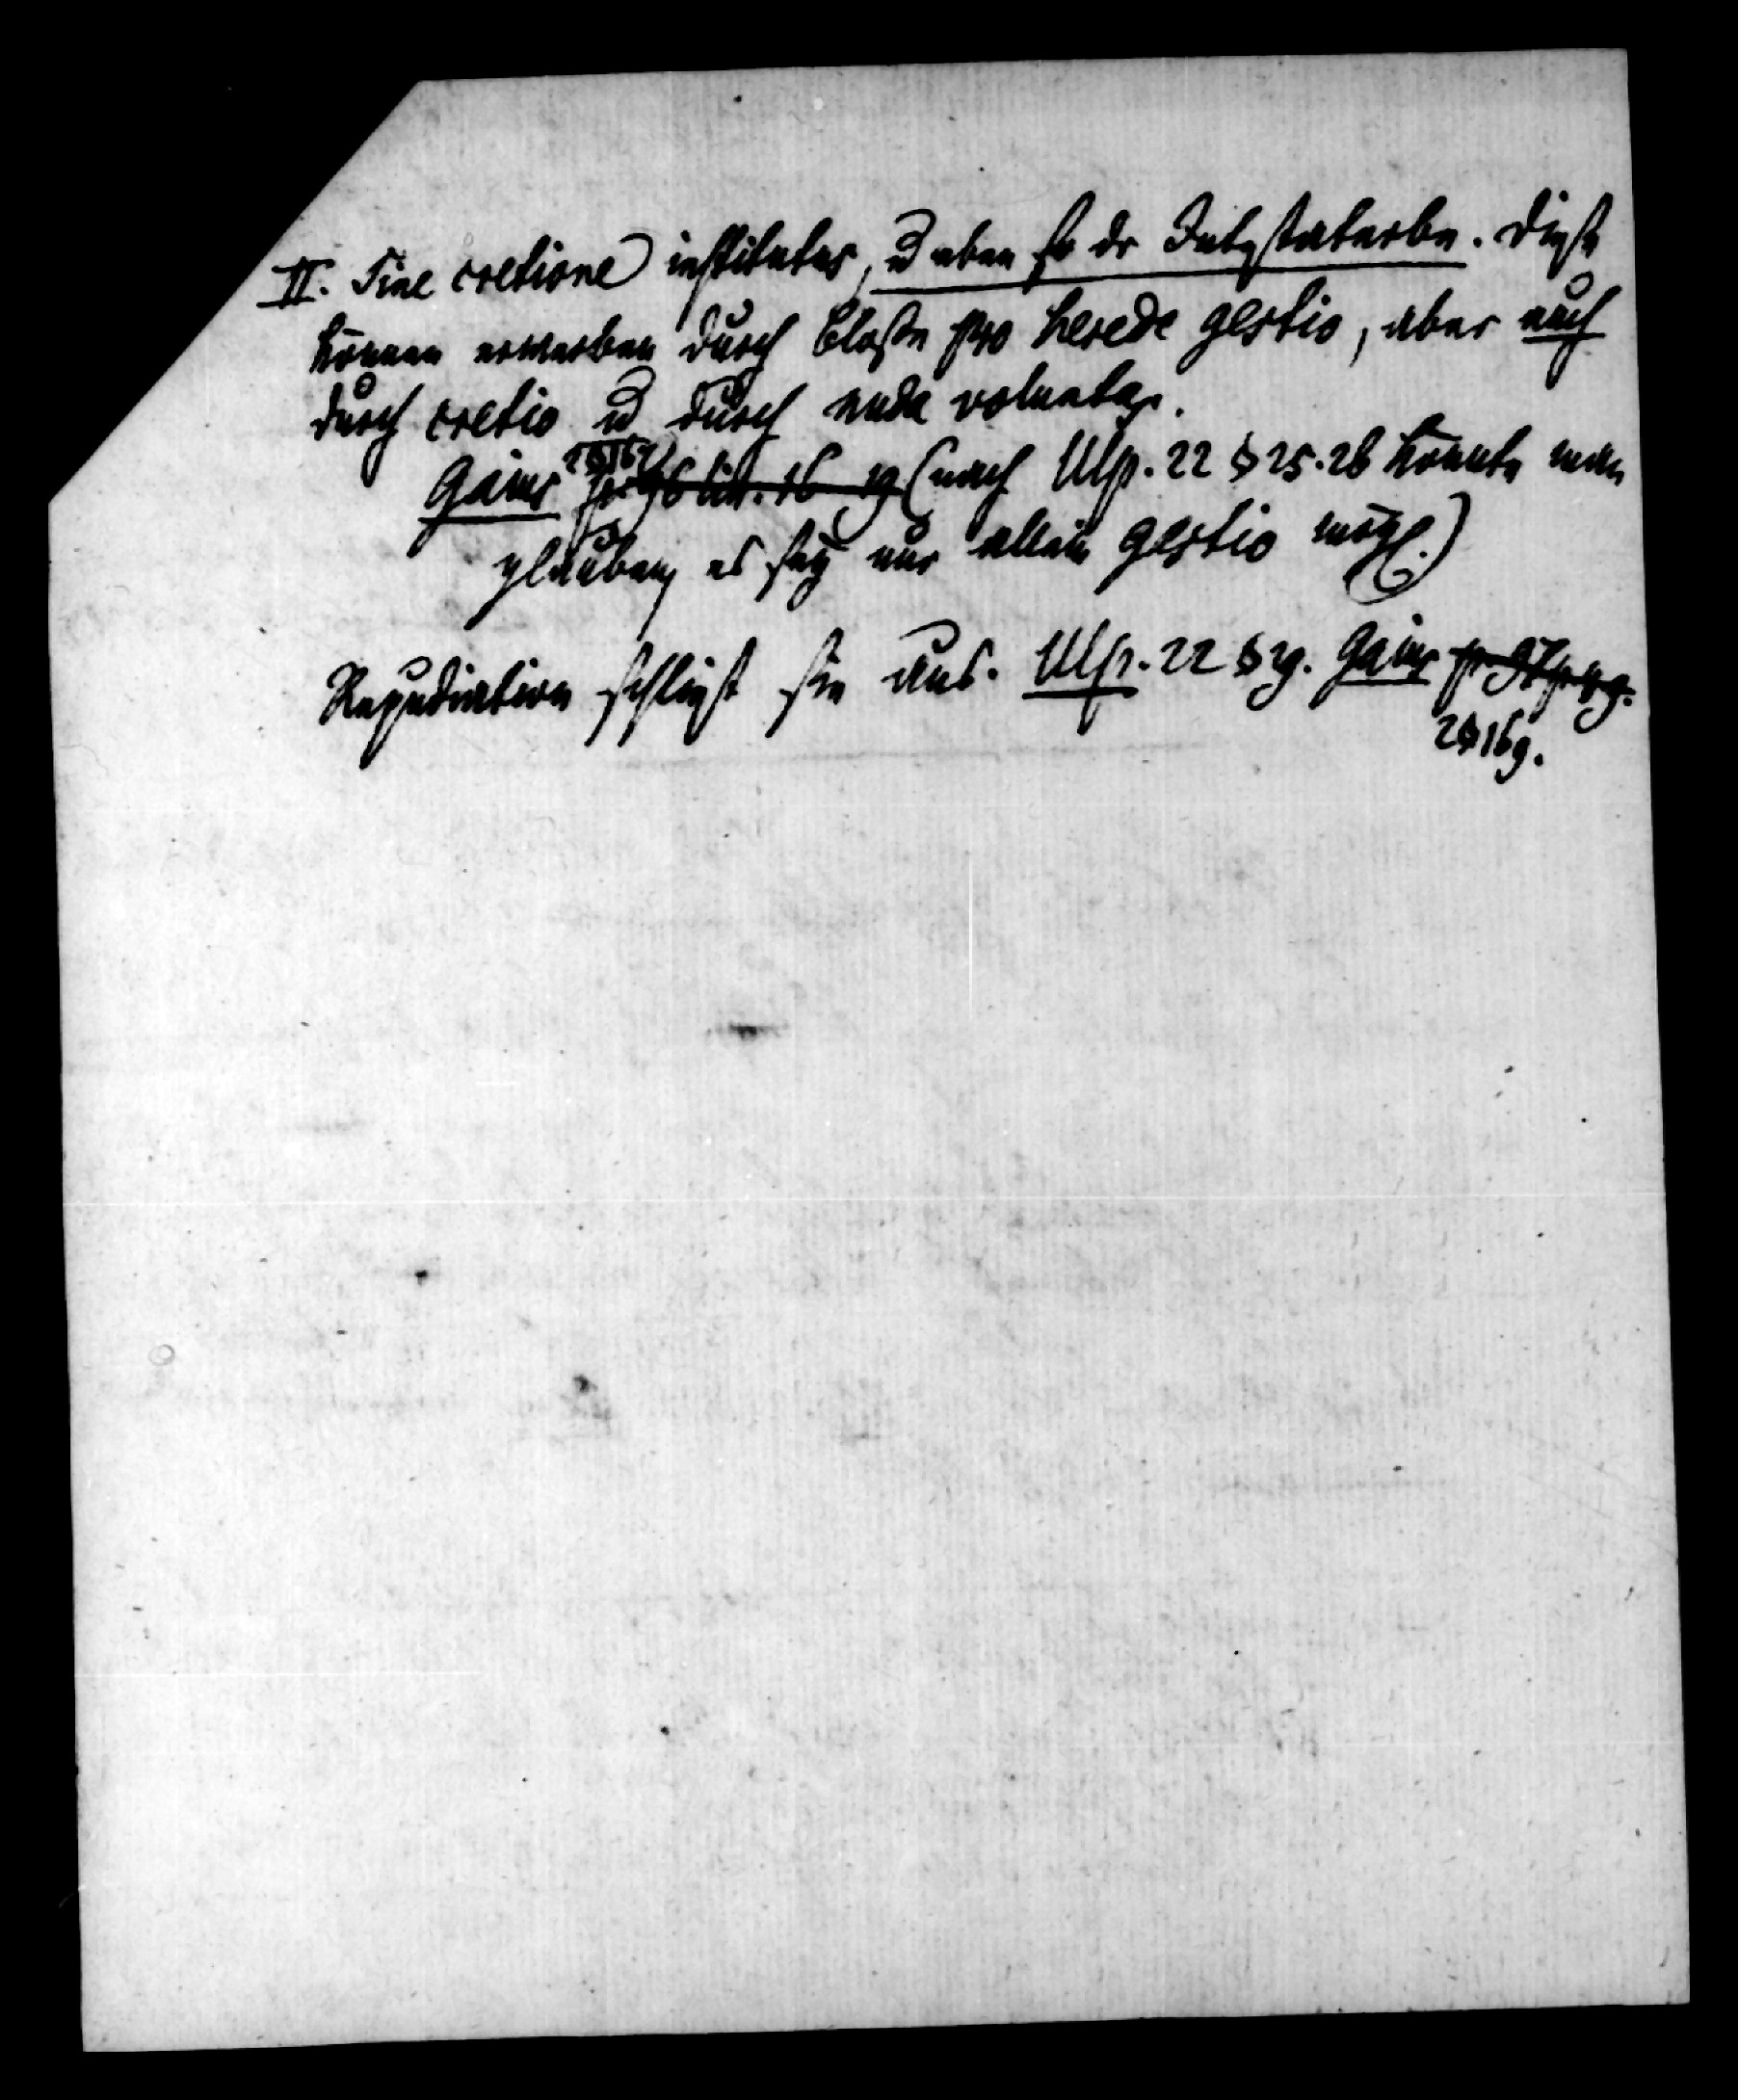 II. Sine cretione institutus, u eben so dr Intestaterbe. Diese
können erwerben durch bloße pro herede gestio, aber auch
durch cretio u durch nuda voluntas.
Gaius 2 § 167 (nach Ulp. 22 § 25. 26 könnte man
glauben, es sey nur allein gestio mögl.)
Repudiation schließt sie aus. Ulp. 22 § 29. Gaius
2 § 169.